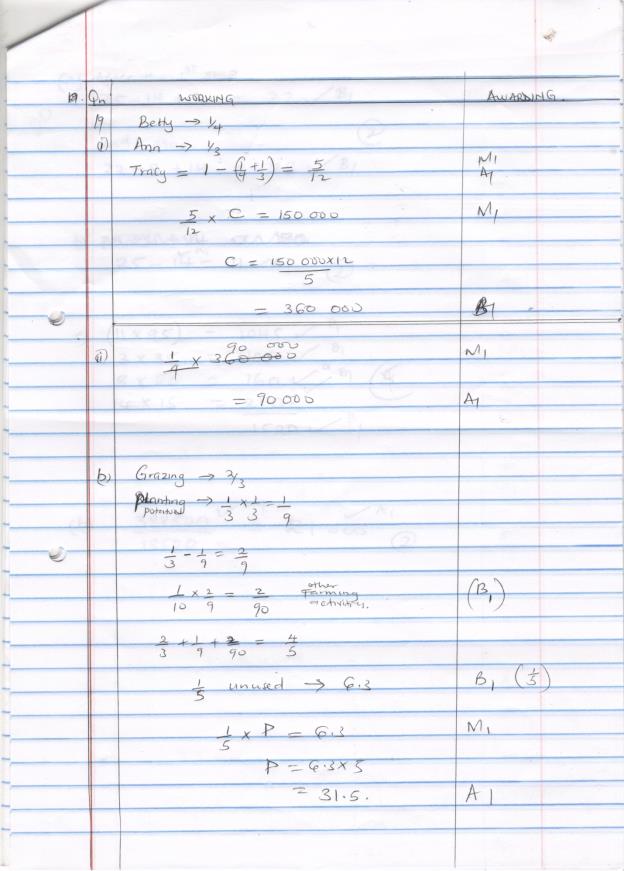 19. Qn WORKING AWARDING.
19 Betty → 1/4
(i) Ann → 1/3 M1
Tracy = 1 - (1/4 + 1/3) = 5/12 A1
5/12 x C = 150 000 M1
C = 150 000x12/5
= 360 000 B1
90 000
(ii) 1/4 x 360 000 M1
= 90 000 A1
b) Grazing → 2/3
planting → 1/3 x 1/3 = 1/9
potatoes
1/3 - 1/9 = 2/9
1/10 x 2/9 = 2/90 other farming activities. (B1)
2/3 + 1/9 + 2/90 = 4/5
1/5 unused → 6.3 B1 (1/5)
1/5 x P = 6.3 M1
P = 6.3x5
= 31.5. A1